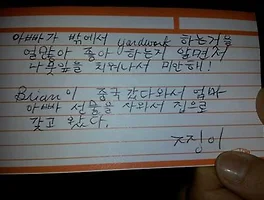 아빠가 밖에서 yardwork 하는거을
얼많아 좋아 하는지 알면서
나뭇잎을 치워나서 미안해!
Brian이 중국 갔다와서 엄마
아빠 선물을 사와서 집으로
갖고 왔다.